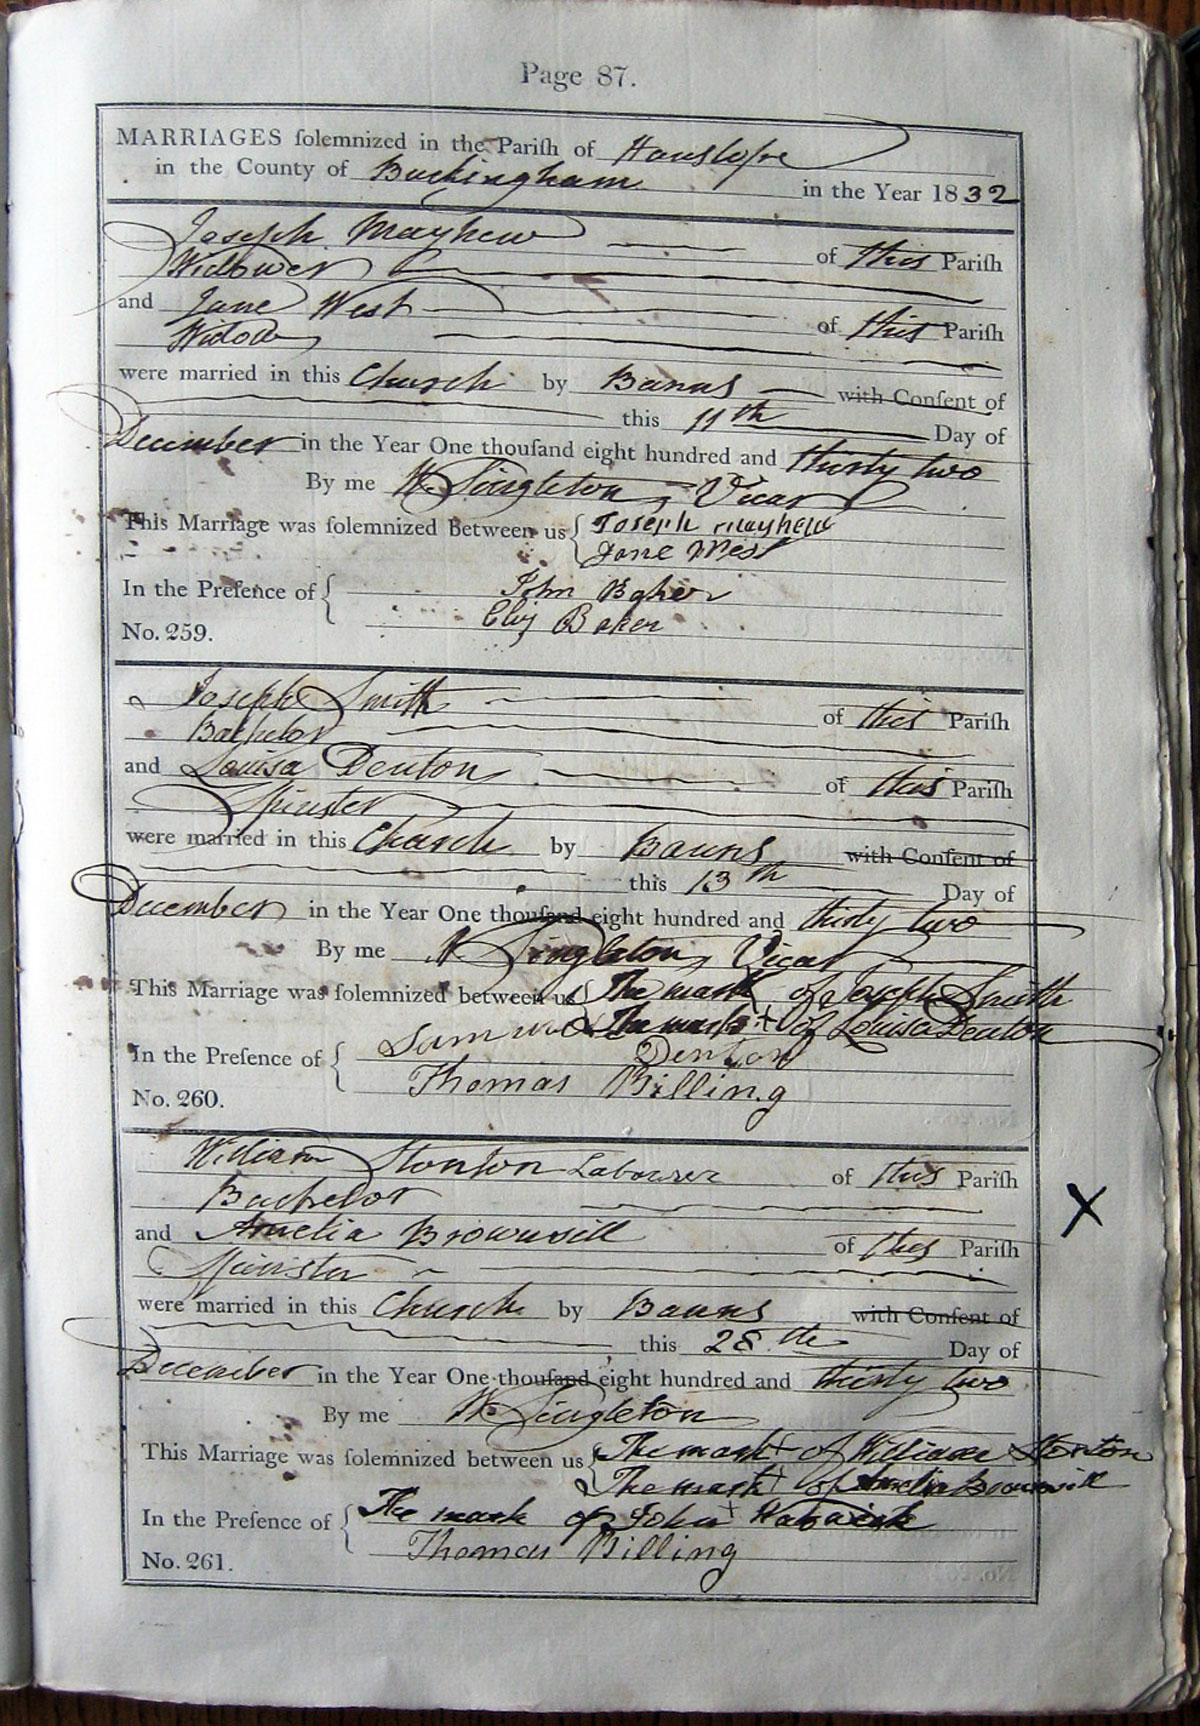 Page 87.
MARRIAGES solemnized in the Parish of Hanslope
in the County of Buckingham in the Year 1832
Joseph Mayhew of this Parish
Widower
and Jane West of this Parish
Widow
were married in this Church by Banns with Consent of
this 11th Day of
December in the Year One thousand eight hundred and thirty two
By me W. Singleton, Vicar
This Marriage was solemnized Between us Joseph Mayhew
Jane West
In the Presence of John Baker
Eliz Baker
No. 259.
Joseph Smith of this Parish
Bachelor
and Louisa Denton of this Parish
Spinster
were married in this Church by Banns with Consent of
this 13th Day of
December in the Year One thousand eight hundred and thirty two
By me W Singleton, Vicar
This Marriage was solemnized between us The mark of Joseph Smith
The mark + of Louisa Denton
In the Presence of Samuel Denton
Thomas Billing
No. 260.
William Stonton Labourer of this Parish
Bachelor
and Amelia Brownsill of this Parish
Spinster
were married in this Church by Banns with Consent of
this 28th Day of
December in the Year One thousand eight hundred and thirty two
By me W. Singleton
This Marriage was solemnized between us The mark + of William Stonton
The mark + of Amelia Brownsill
In the Presence of The mark of John +
Thomas Billing
No. 261.
X